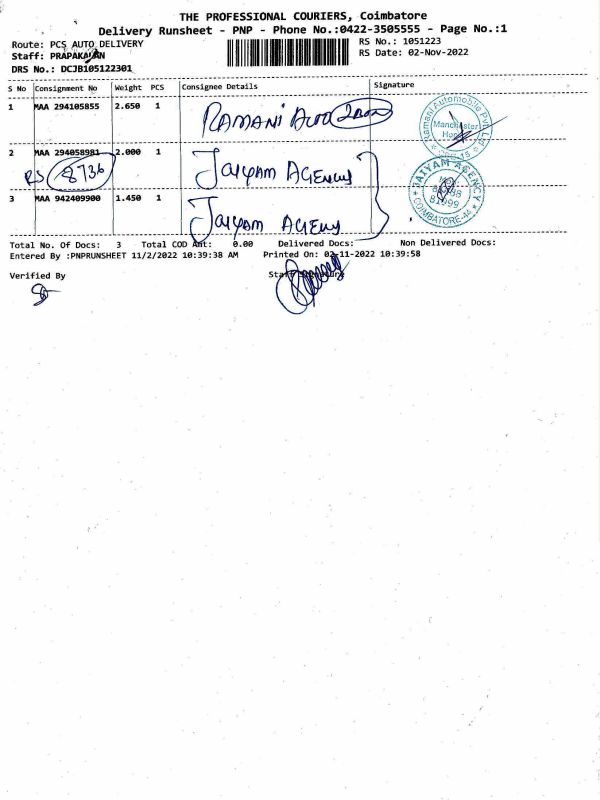 THE PROFESSIONAL COURIERS, Coimbatore
Delivery Runsheet - PNP - Phone No.:0422-3505555 - Page No.:1
Route: PCS AUTO DELIVERY
RS No.: 1051223
Staff: PRAPAKARAN
RS Date: 02-Nov-2022
DRS No.: DCJB105122301
S No Consignment No Weight PCS Consignee Details Signature
1 MAA 294105855 2.650 1 RAMANI AUTO
Ramani Automobile Pvt. Ltd
Manchester
2 MAA 294058981 2.000 1 JAIYAM AGENCY
RS 8736
JAIYAM AGENCY
81999
COIMBATORE-45
3 MAA 942409900 1.450 1 JAIYAM AGENCY
Total No. Of Docs: 3 Total COD Amt: 0.00 Delivered Docs: Non Delivered Docs:
Entered By :PNPRUNSHEET 11/2/2022 10:39:38 AM Printed On: 02-11-2022 10:39:58
Verified By
Staff Signature